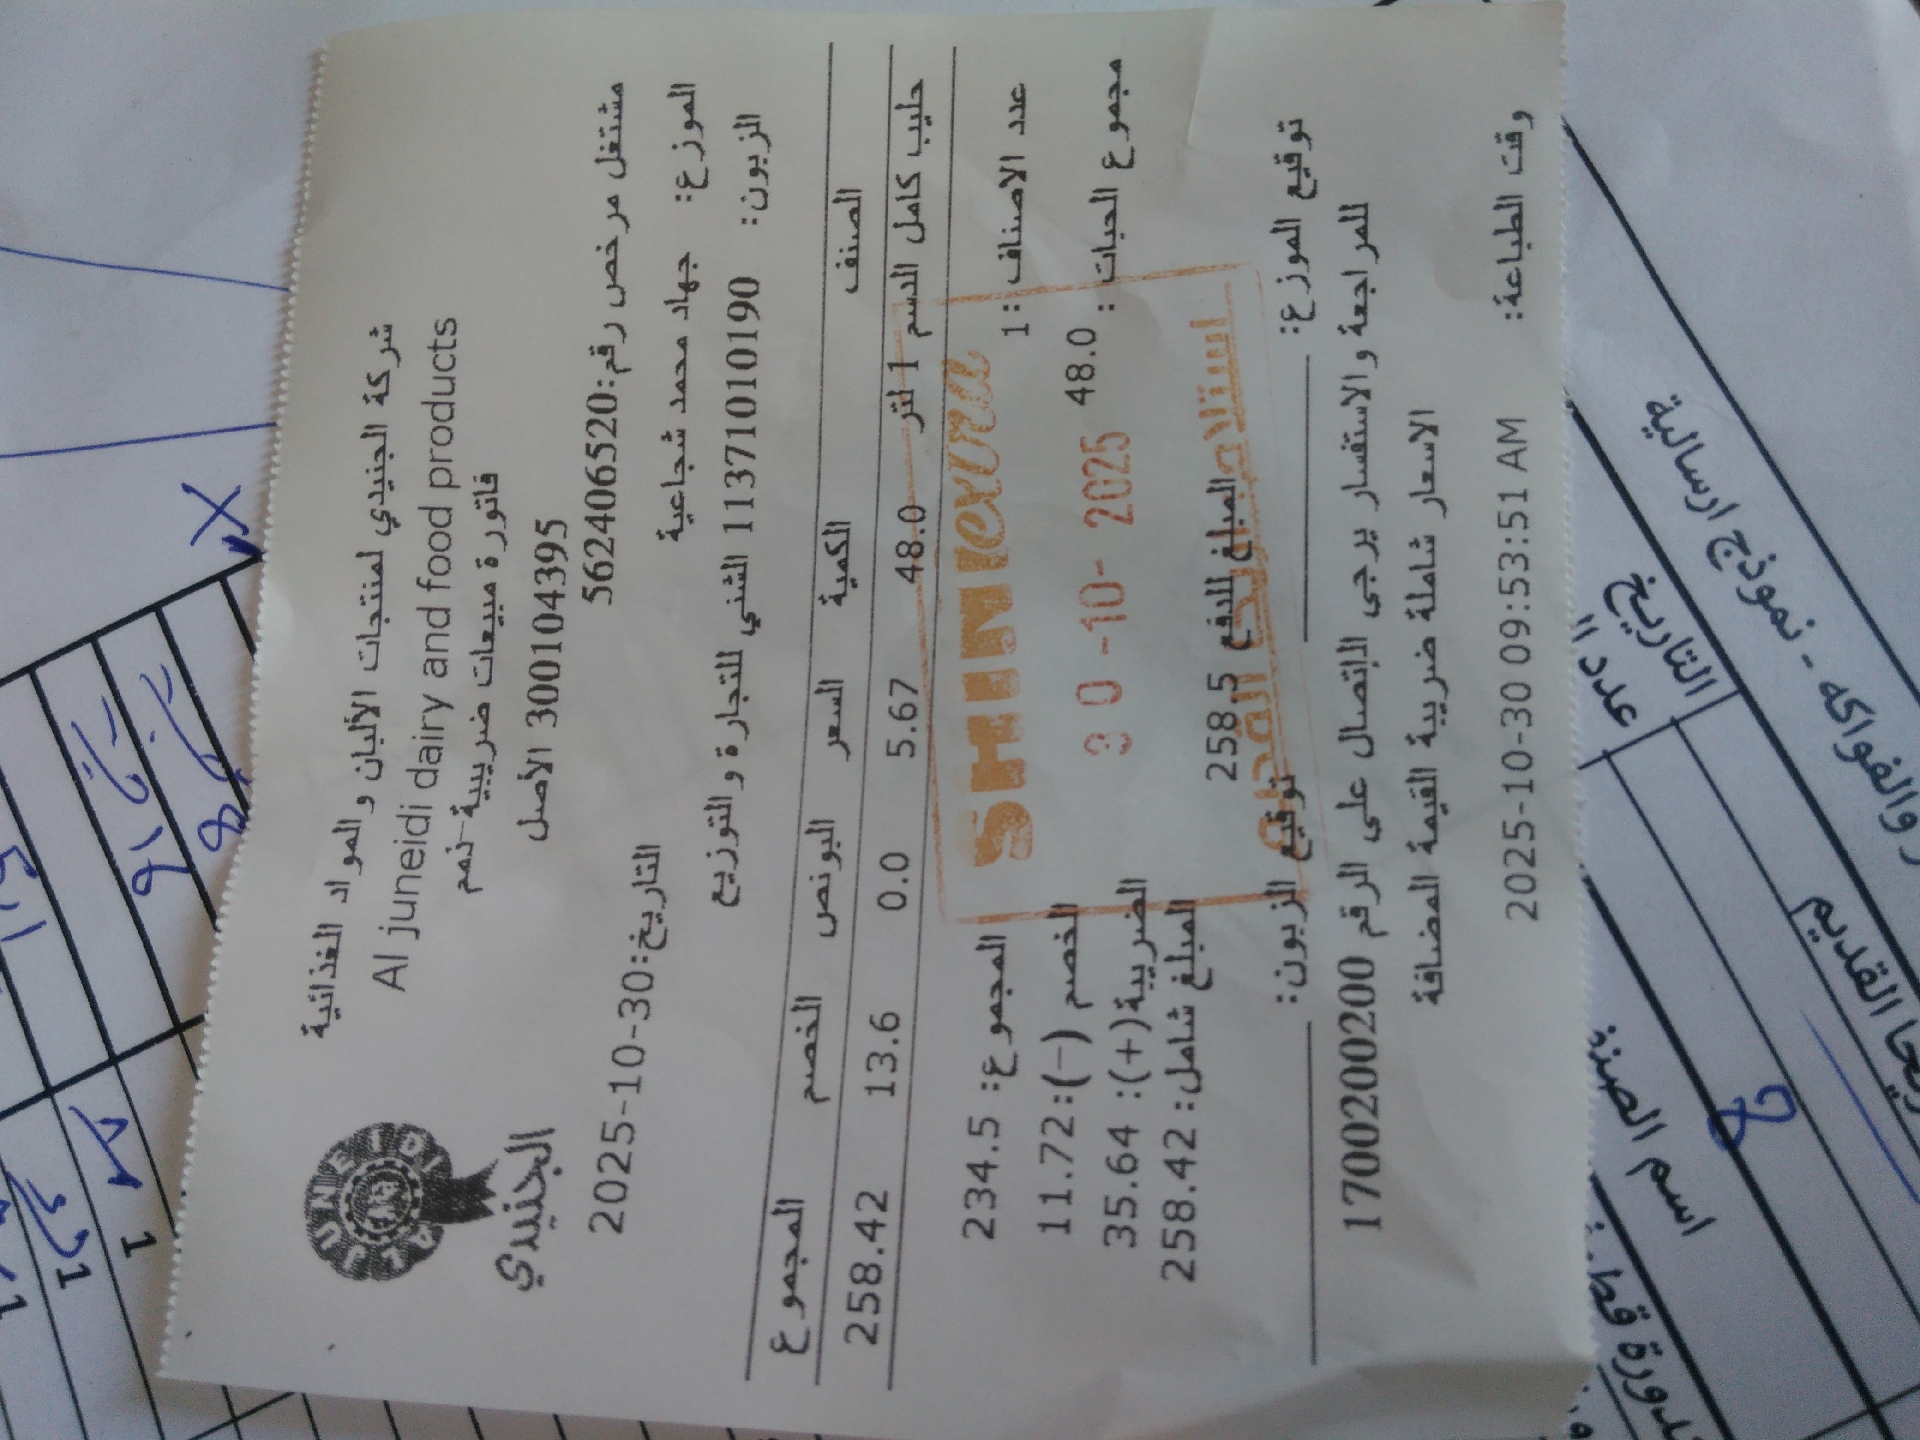 شركة الجنيدي لمنتجات الألبان والمواد الغذائية
Al juneidi dairy and food products
فاتورة مبيعات ضريبية-ذمم
300104395 الأصل
AL JUNEIDI
الجنيدي
مشتغل مرخص رقم:562406520
التاريخ:2025-10-30
الموزع: جهاد محمد شجاعية
الزبون: 1137101019​0 الشني للتجارة والتوزيع
الصنف الكمية السعر البونص الخصم المجموع
حليب كامل الدسم 1 لتر 48.0 5.67 0.0 13.6 258.42
عدد الاصناف :1 المجموع: 234.5
مجموع الحبات : 48.0 الخصم (-):11.72
الضريبة(+): 35.64
المبلغ للدفع 258.5 المبلغ شامل: 258.42
SHINIextra
30-10-2025
استلام
توقيع الموزع: توقيع الزبون:
للمراجعة والاستفسار يرجى الإتصال على الرقم 1700200200
الاسعار شاملة ضريبة القيمة المضافة
وقت الطباعة: 2025-10-30 09:53:51 AM
والفواكه - نموذج ارسالية
التاريخ
القديم
اسم الصنف
1
1
1